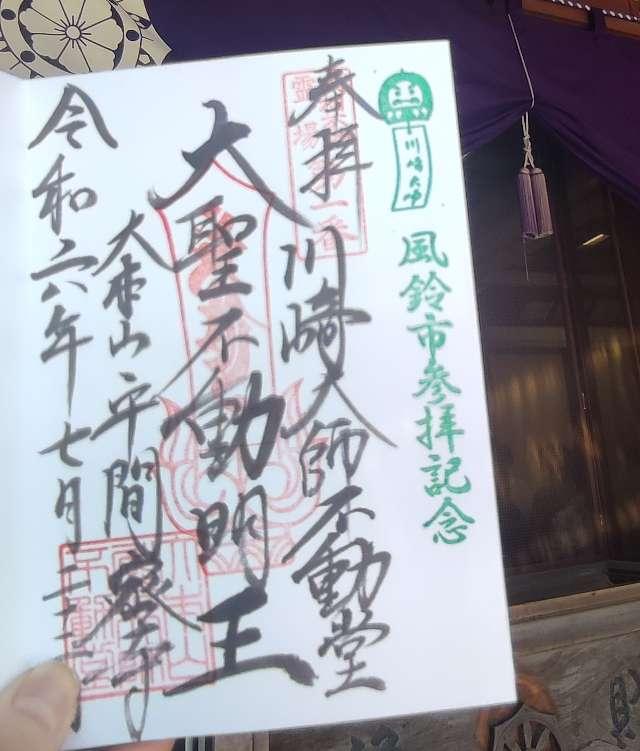 川崎大師
風鈴市参拝記念
奉拝
霊場第一番
川崎大師不動堂
大聖不動明王
大本山平間密寺
令和六年七月二十